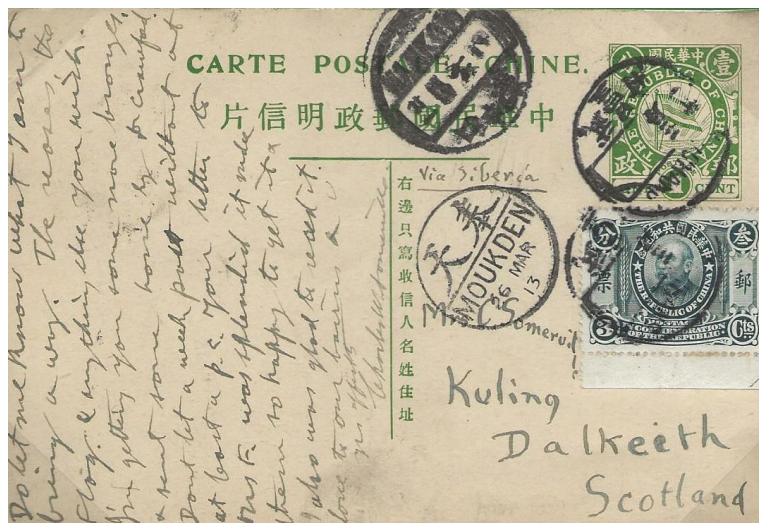 CARTE POSTALE CHINE.
中華民國郵政明信片
右邊只寫收信人名姓住址
中華民國
壹
THE REPUBLIC OF CHINA
郵政
CENT
Via Siberia
奉天
MOUKDEN
26 MAR
13
中華民國共和紀念
分
叁
郵
票
THE REPUBLIC OF CHINA
POSTAGE
IN COMMEMORATION
OF THE REPUBLIC
3
Cts
Mrs C Somervil
Kuling
Dalkeith
Scotland
Do let me know what I am to
bring a way. The roses, the
& anything else you wish.
I'm getting you some more brought
& sent some home by
Dont let a week pass without at
at least a p.c. Your letter to
was splendid it made
them so happy to get it &
I also was glad to read it.
love to our bairns &